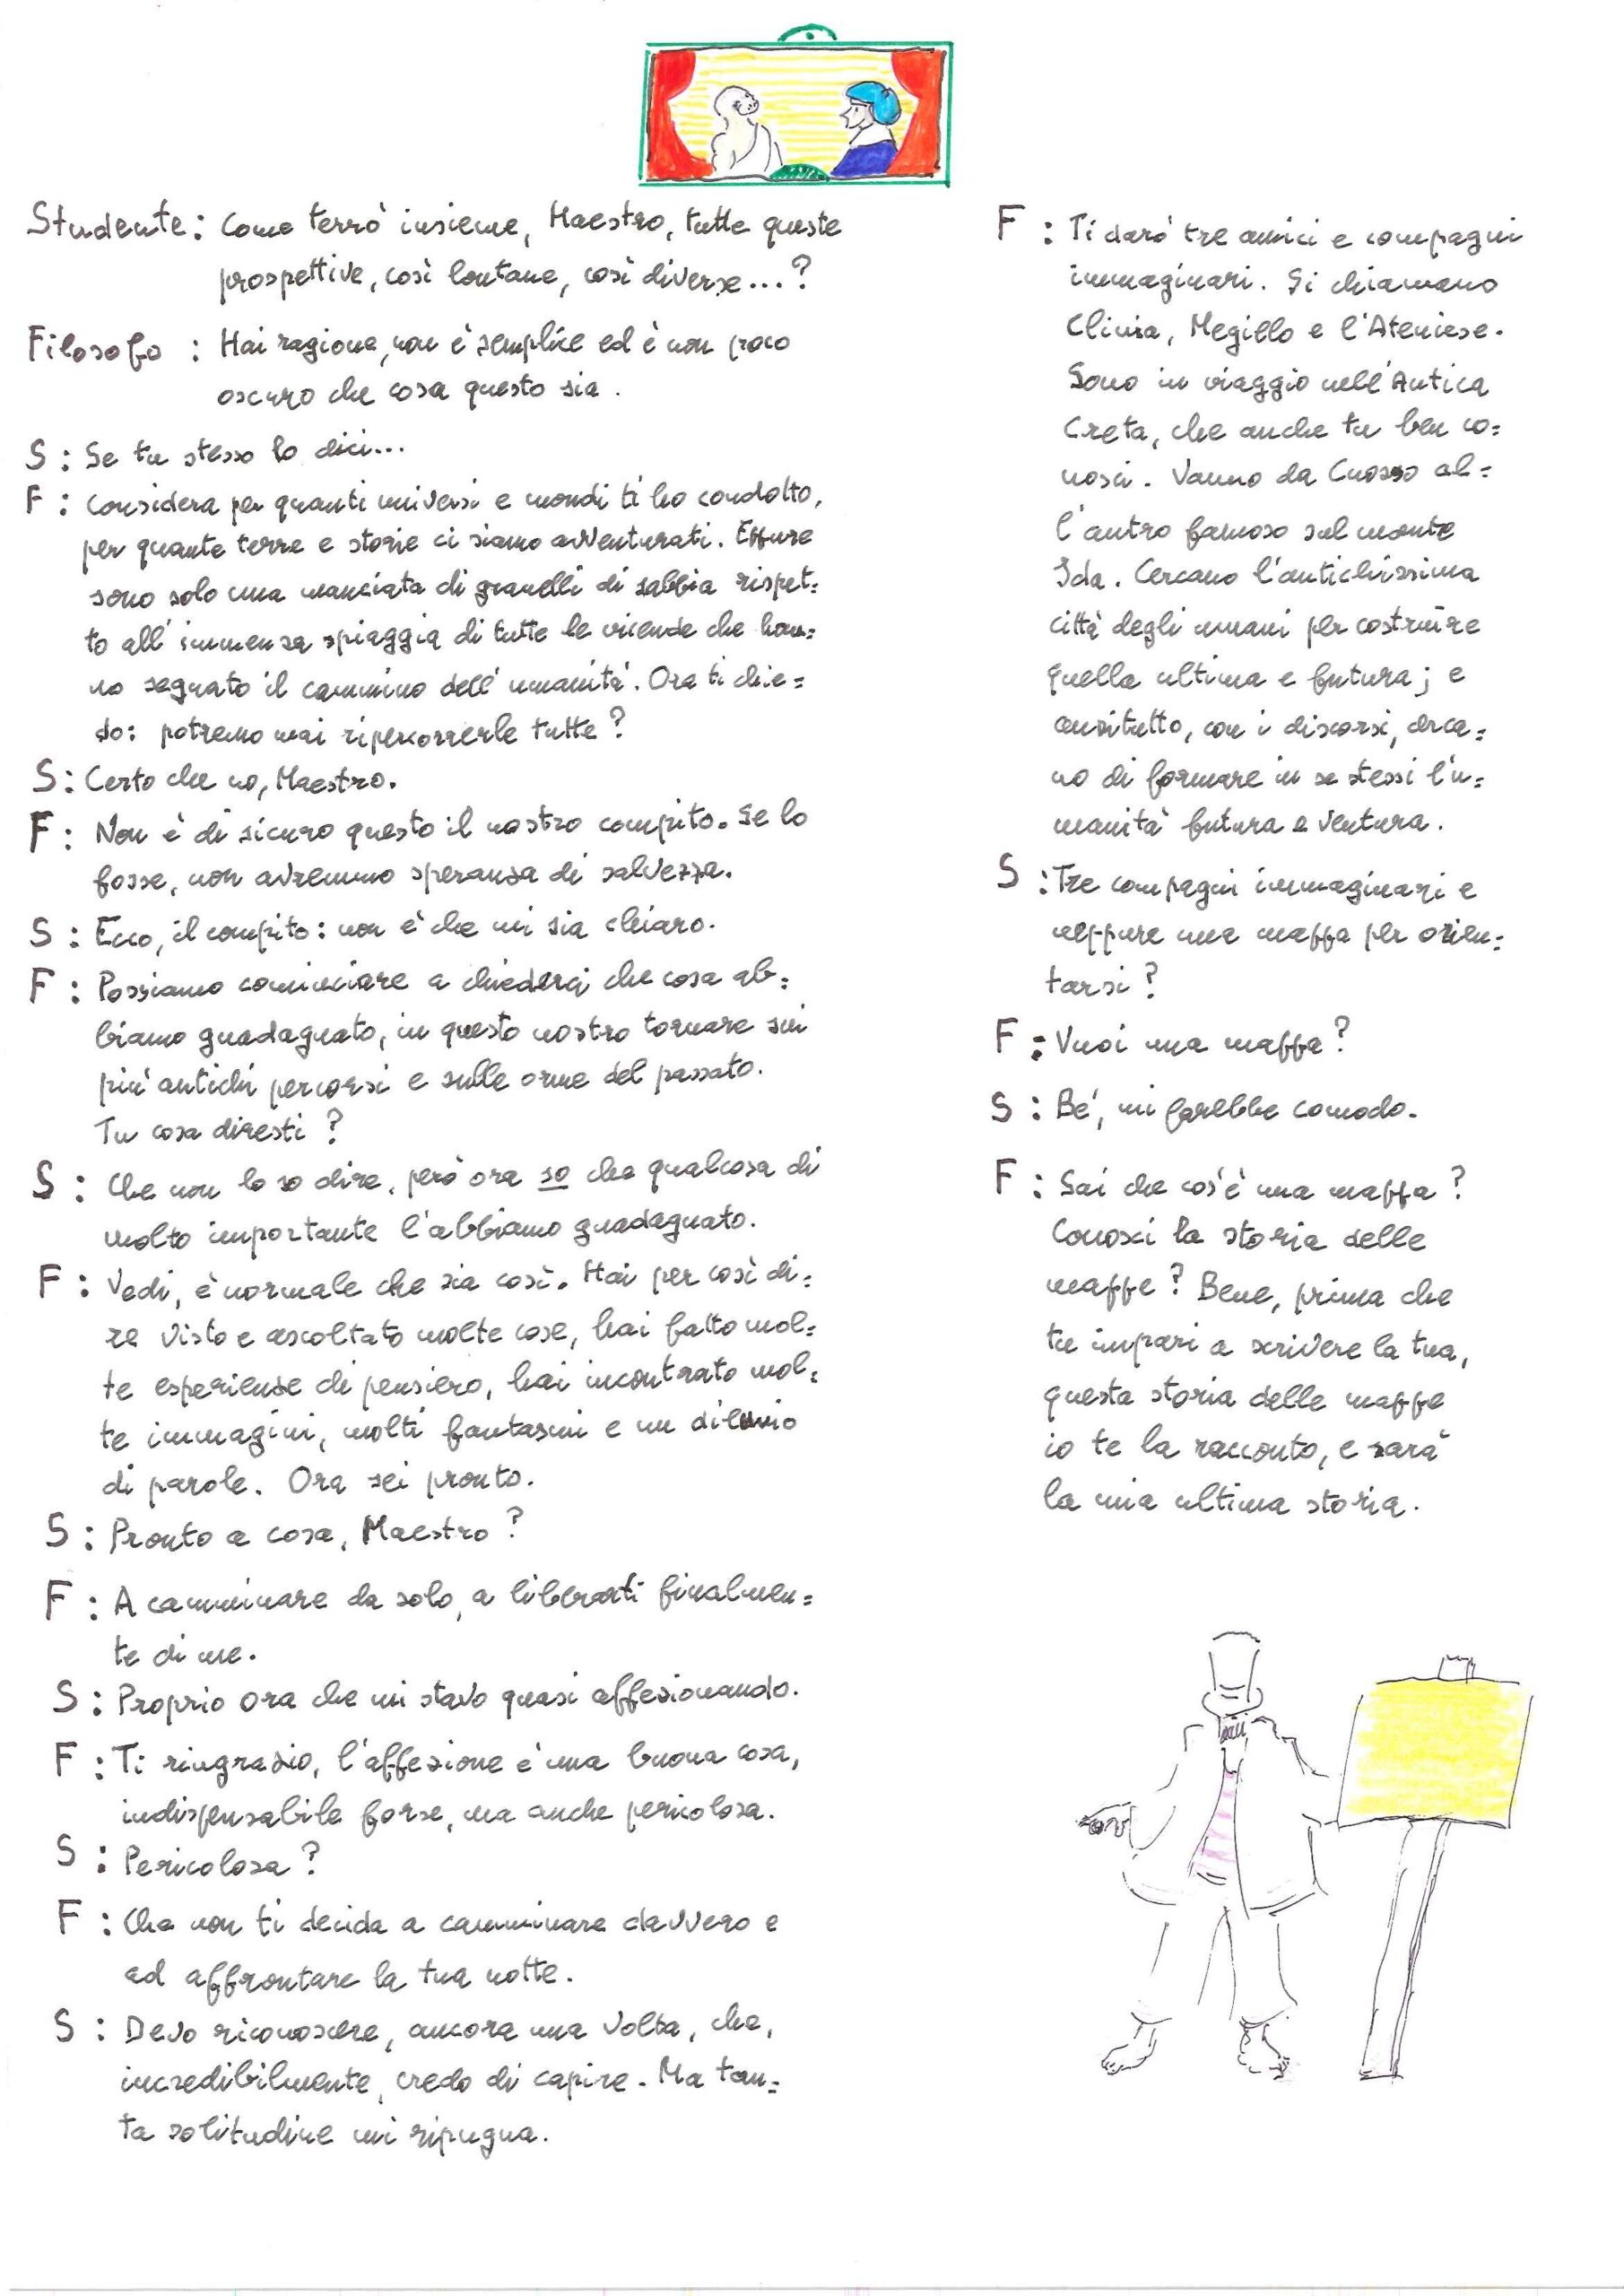 Studente: Come terrò insieme, Maestro, tutte queste
prospettive, così lontane, così diverse...?
Filosofo : Hai ragione, non è semplice ed è non poco
oscuro che cosa questo sia.
S : Se tu stesso lo dici...
F : Considera per quanti universi e mondi ti ho condotto,
per quante terre e storie ci siamo avventurati. Eppure
sono solo una manciata di granelli di sabbia rispet=
to all'immensa spiaggia di tutte le vicende che han=
no segnato il cammino dell'umanità. Ora ti chie=
do: potremo mai ripercorrerle tutte?
S : Certo che no, Maestro.
F : Non è di sicuro questo il nostro compito. Se lo
fosse, non avremmo speranza di salvezza.
S : Ecco, il compito: non è che mi sia chiaro.
F : Possiamo cominciare a chiederci che cosa ab=
biamo guadagnato, in questo nostro tornare sui
più antichi percorsi e sulle orme del passato.
Tu cosa diresti?
S : Che non lo so dire, però ora so che qualcosa di
molto importante l'abbiamo guadagnato.
F : Vedi, è normale che sia così. Hai per così di=
re visto e ascoltato molte cose, hai fatto mol=
te esperienze di pensiero, hai incontrato mol=
te immagini, molti fantasmi e un diluvio
di parole. Ora sei pronto.
S : Pronto a cosa, Maestro?
F : A camminare da solo, a liberarti finalmen=
te di me.
S : Proprio ora che mi stavo quasi affezionando.
F : Ti ringrazio, l'affezione è una buona cosa,
indispensabile forse, ma anche pericolosa.
S : Pericolosa?
F : Che non ti decida a camminare davvero e
ad affrontare la tua notte.
S : Devo riconoscere, ancora una volta, che,
incredibilmente, credo di capire. Ma tan=
ta solitudine mi ripugna.
F : Ti darò tre amici e compagni
immaginari. Si chiamano
Clinia, Megillo e l'Ateniese.
Sono in viaggio nell'Antica
Creta, che anche tu ben co=
nosci. Vanno da Cnosso al=
l'antro famoso sul monte
Ida. Cercano l'antichissima
città degli umani per costruire
quella ultima e futura; e
anzitutto, con i discorsi, cerca=
no di formare in se stessi l'u=
manità futura e ventura.
S : Tre compagni immaginari e
neppure una mappa per orien=
tarsi?
F : Vuoi una mappa?
S : Be', mi farebbe comodo.
F : Sai che cos'è una mappa?
Conosci la storia delle
mappe? Bene, prima che
tu impari a scrivere la tua,
questa storia delle mappe
io te la racconto, e sarà
la mia ultima storia.